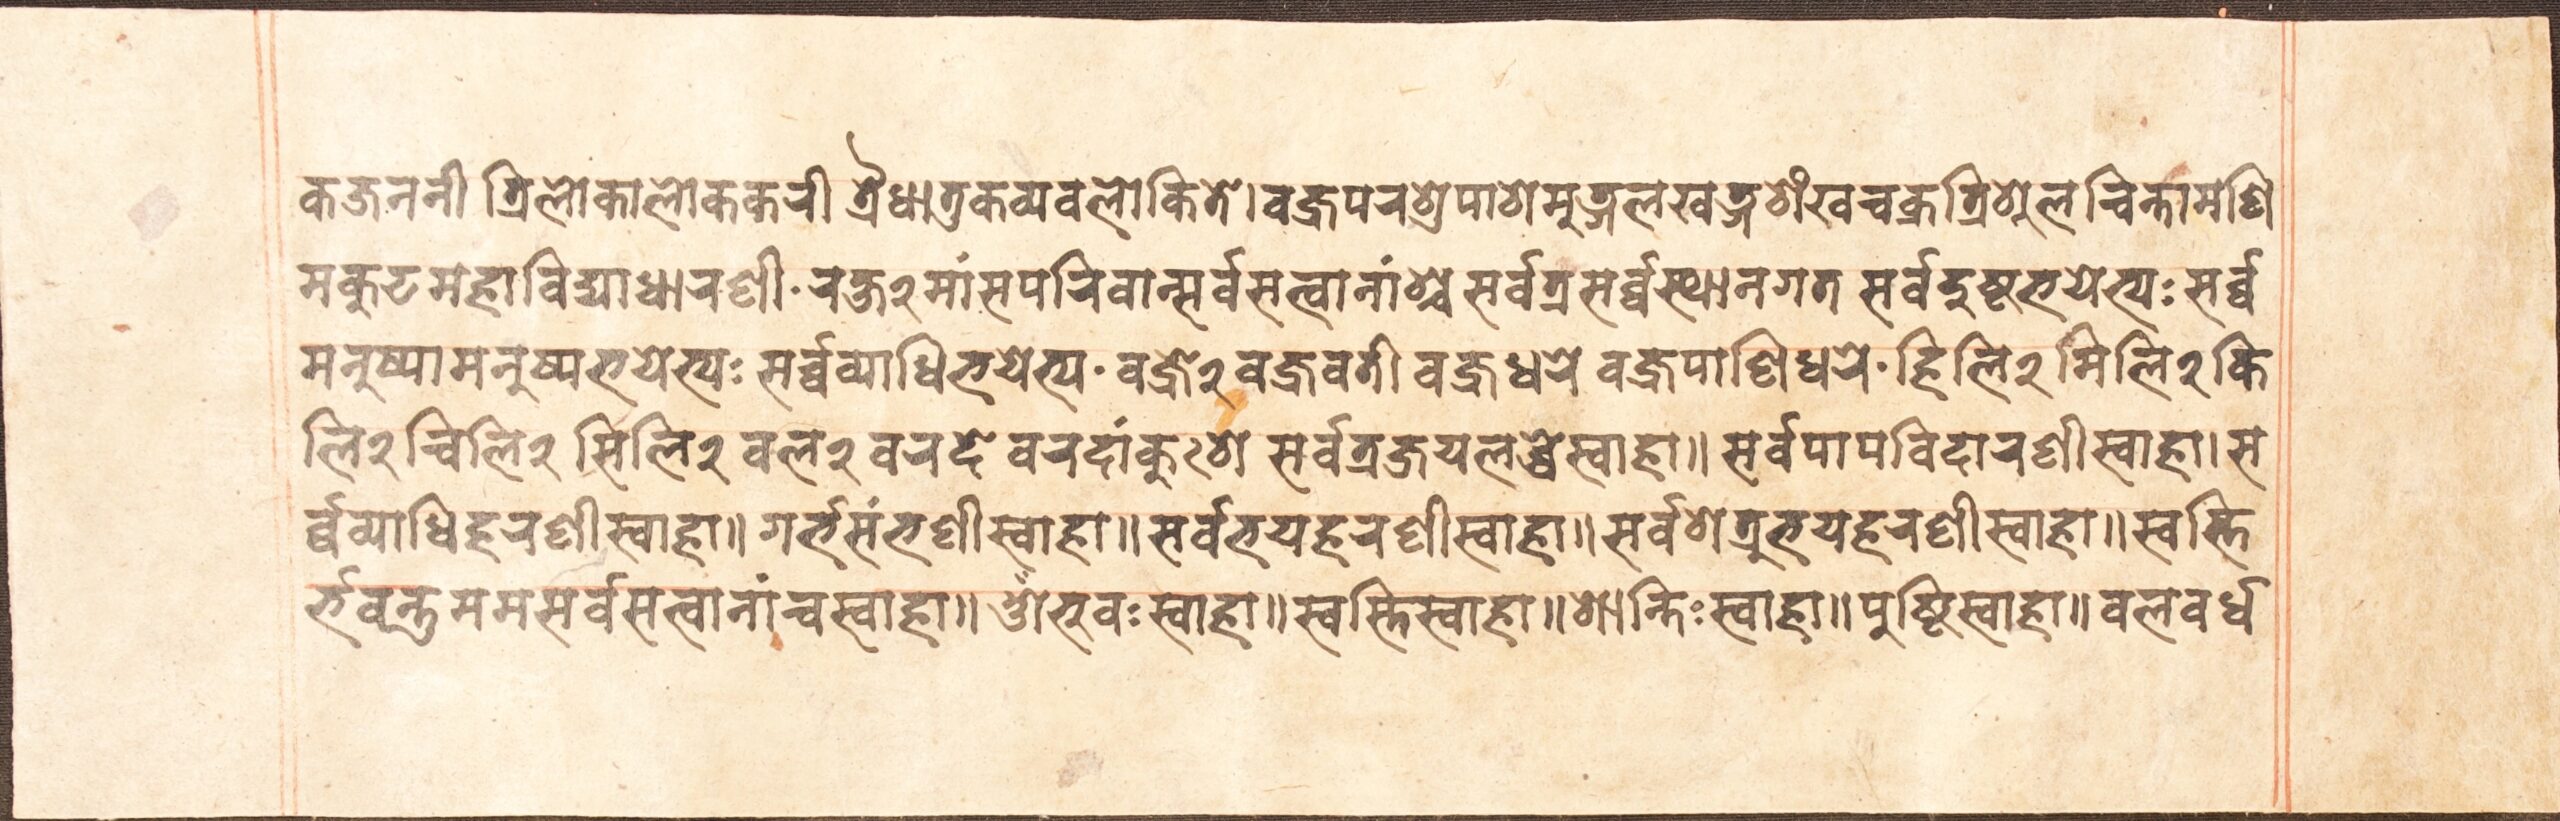 कजननी त्रिलोकालोककरी त्रैधातुकव्यवलोकिते। वज्रपरशुपाशमुद्गलखड्गशंखचक्रत्रिशूलचिन्तामणि
मकुटमहाविद्याधारणी· रक्ष२मांसपरिवान्सर्वसत्वानांश्च सर्वत्रसर्व्वस्थानगत सर्वदुष्टभयेभ्यः सर्व्व
मनुष्यामनुष्यभयेभ्यः सर्व्वव्याधिभयेभ्य· वज्रे२ वज्रवती वज्रधरे वज्रपाणिधरे· हिलि२ मिलि२ कि
लि२ चिलि२ सिलि२ वल२ वरदे वरदांकुःशे सर्वत्रजयलब्धेस्वाहा॥ सर्वपापविदारणीस्वाहा। स
र्व्वव्याधिहरणीस्वाहा॥ गर्भसंभणीस्वाहा॥ सर्वभयहरणीस्वाहा॥ सर्वशत्रुभयहरणीस्वाहा॥ स्वस्ति
र्भवन्तु ममसर्वसत्वानांचस्वाहा॥ ॐभुवःस्वाहा॥ स्वस्तिस्वाहा॥ शान्तिःस्वाहा॥ पुष्टिस्वाहा॥ वलवर्ध